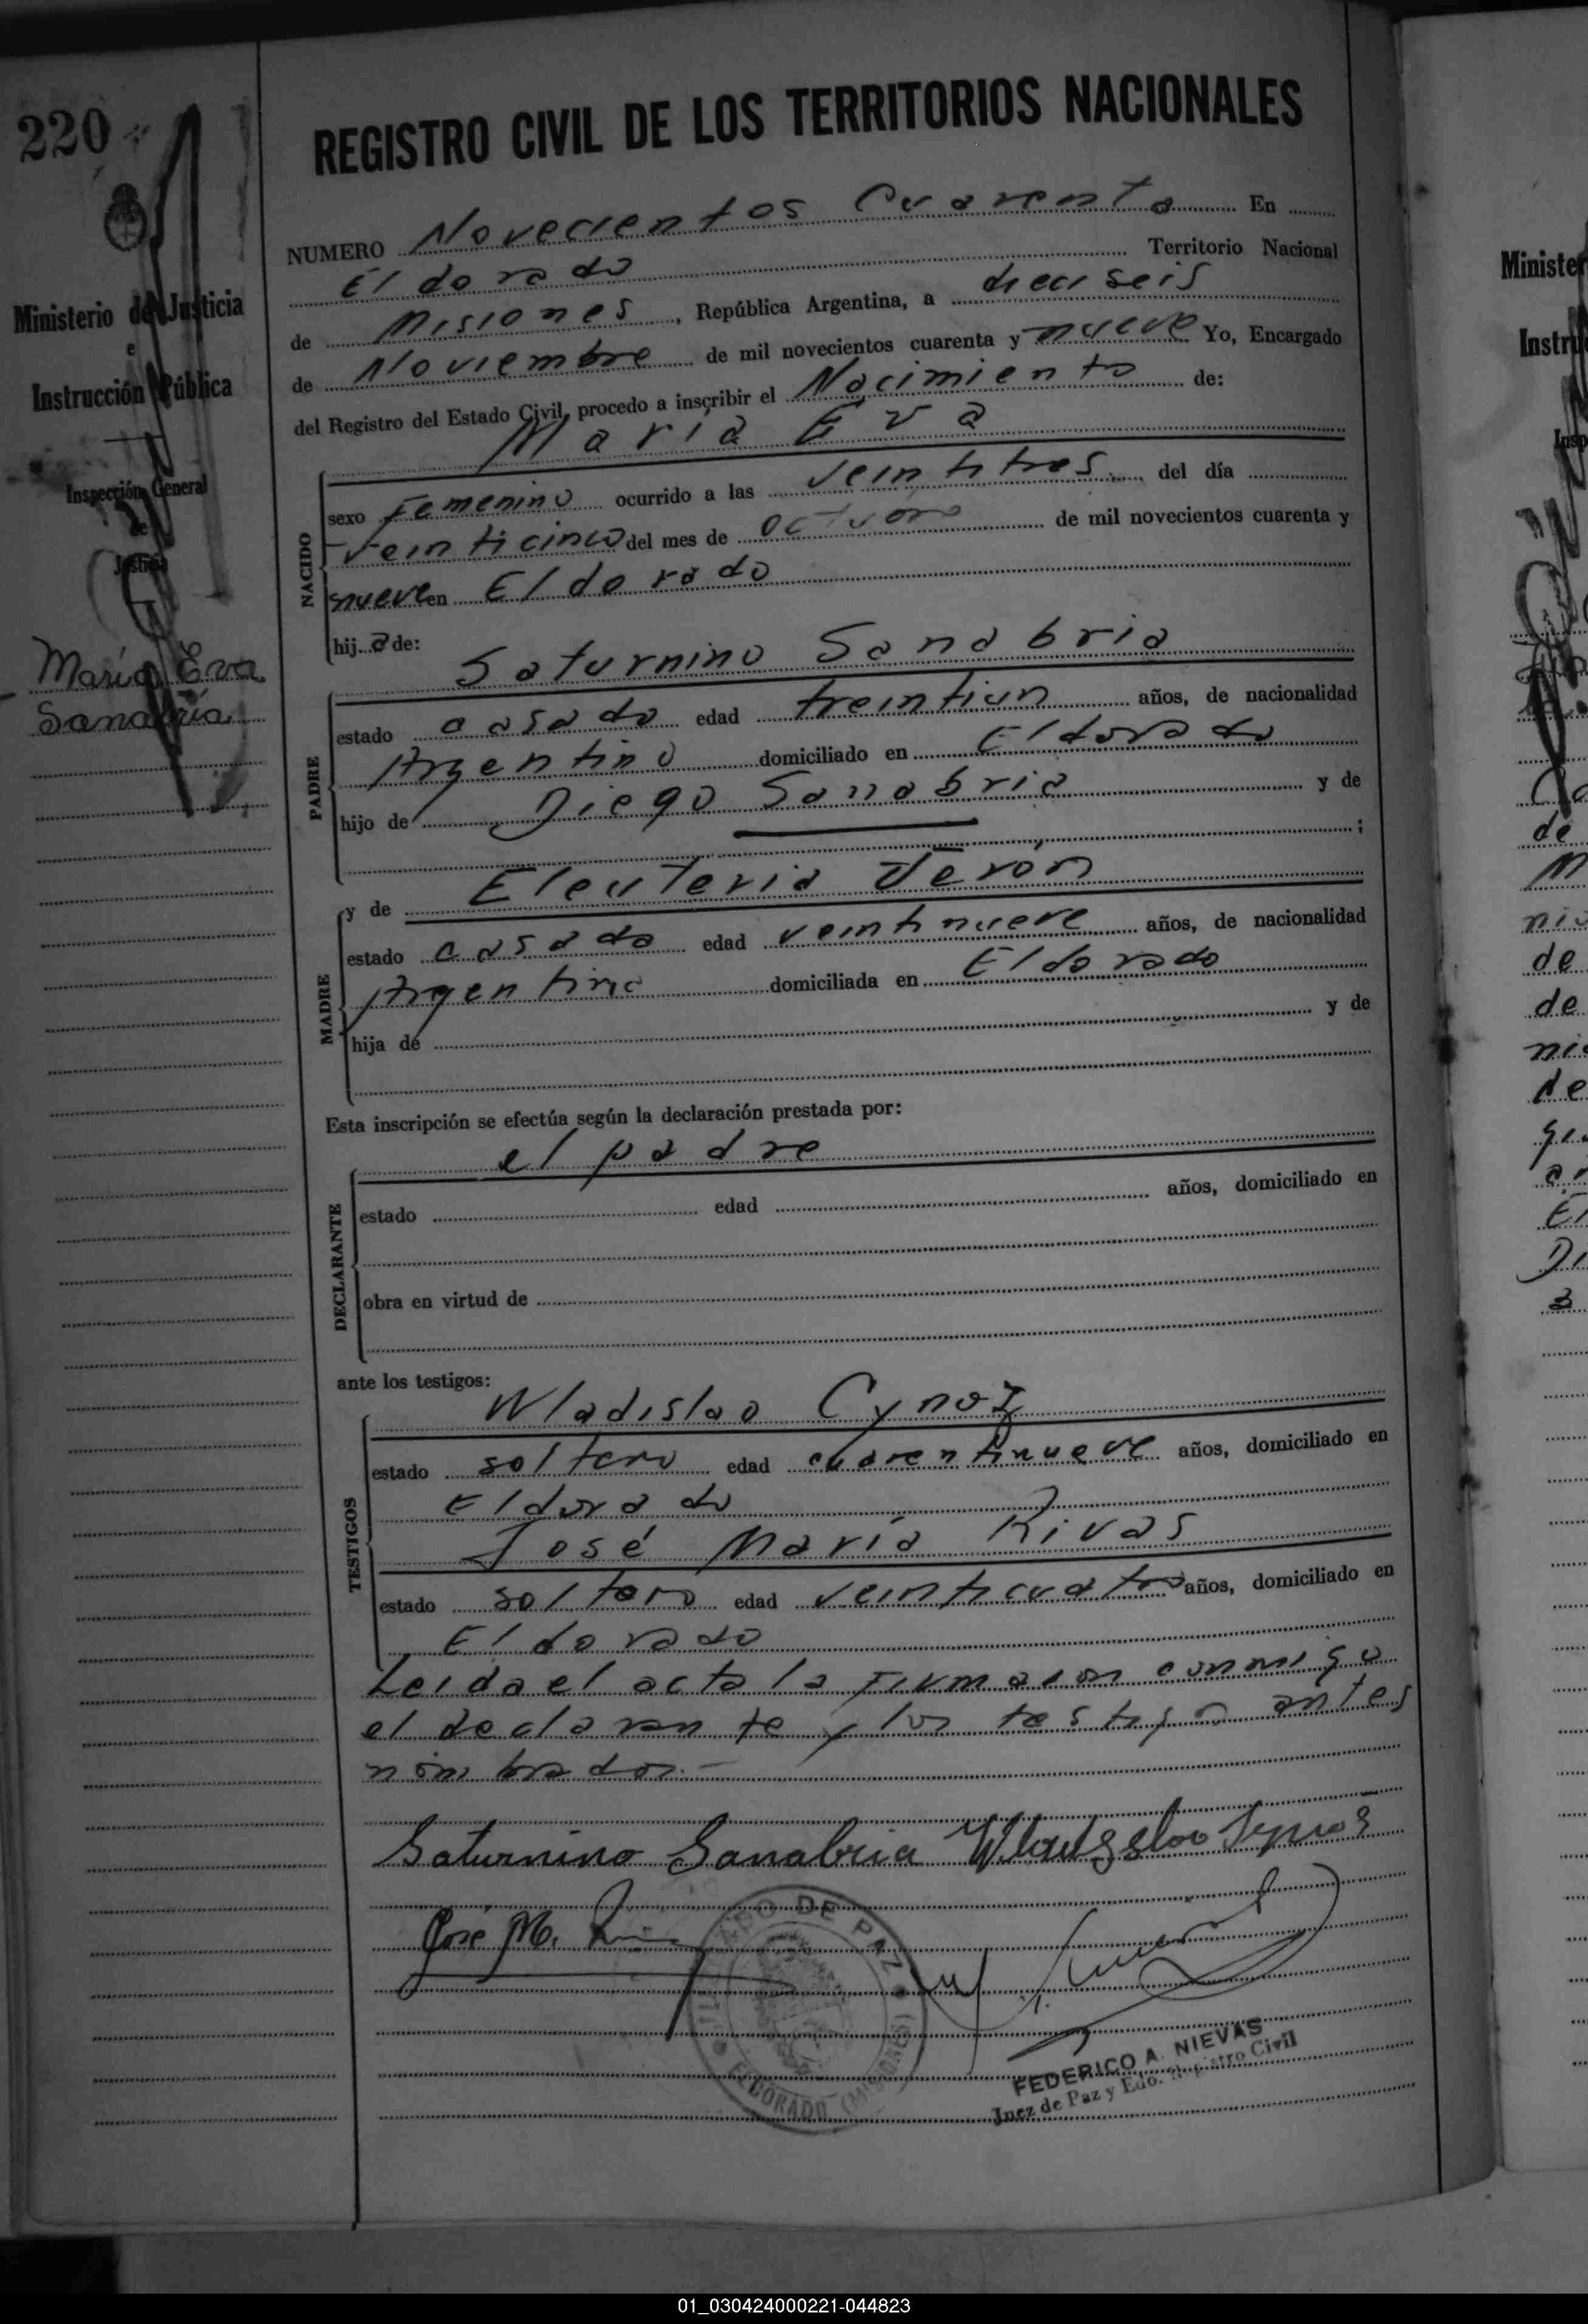 220
REGISTRO CIVIL DE LOS TERRITORIOS NACIONALES
NUMERO Novecientos Cuarenta En
Eldorado Territorio Nacional
de Misiones, República Argentina, a dieciseis
de Noviembre de mil novecientos cuarenta y nueve Yo, Encargado
del Registro del Estado Civil, procedo a inscribir el Nacimiento de:
María Eva
NACIDO
sexo Femenino ocurrido a las veintitres del día
veinticinco del mes de octubre de mil novecientos cuarenta y
nueve en Eldorado
hij a de:
Saturnino Sanabria
PADRE
estado casado edad treintiun años, de nacionalidad
Argentino domiciliado en Eldorado
hijo de Diego Sanabria y de
;
y de Eleuteria Verón
MADRE
estado casada edad veintinueve años, de nacionalidad
Argentina domiciliada en Eldorado
hija de y de
Esta inscripción se efectúa según la declaración prestada por:
el padre
DECLARANTE
estado edad años, domiciliado en
obra en virtud de
ante los testigos:
Wladislao Cynoz
TESTIGOS
estado soltero edad cuarentinueve años, domiciliado en
Eldorado
José María Rivas
estado soltero edad veinticuatro años, domiciliado en
Eldorado
Leida el acta la firmaron conmigo
el declarante y los testigos antes
nombrados.-
Saturnino Sanabria
José M.
DE PAZ
ELDORADO (MISIONES)
FEDERICO A. NIEVAS
Juez de Paz y Edo. Registro Civil
Ministerio de Justicia
e
Instrucción Pública
Inspección General
de
Justicia
María Eva
Sanabria
01_030424000221-044823